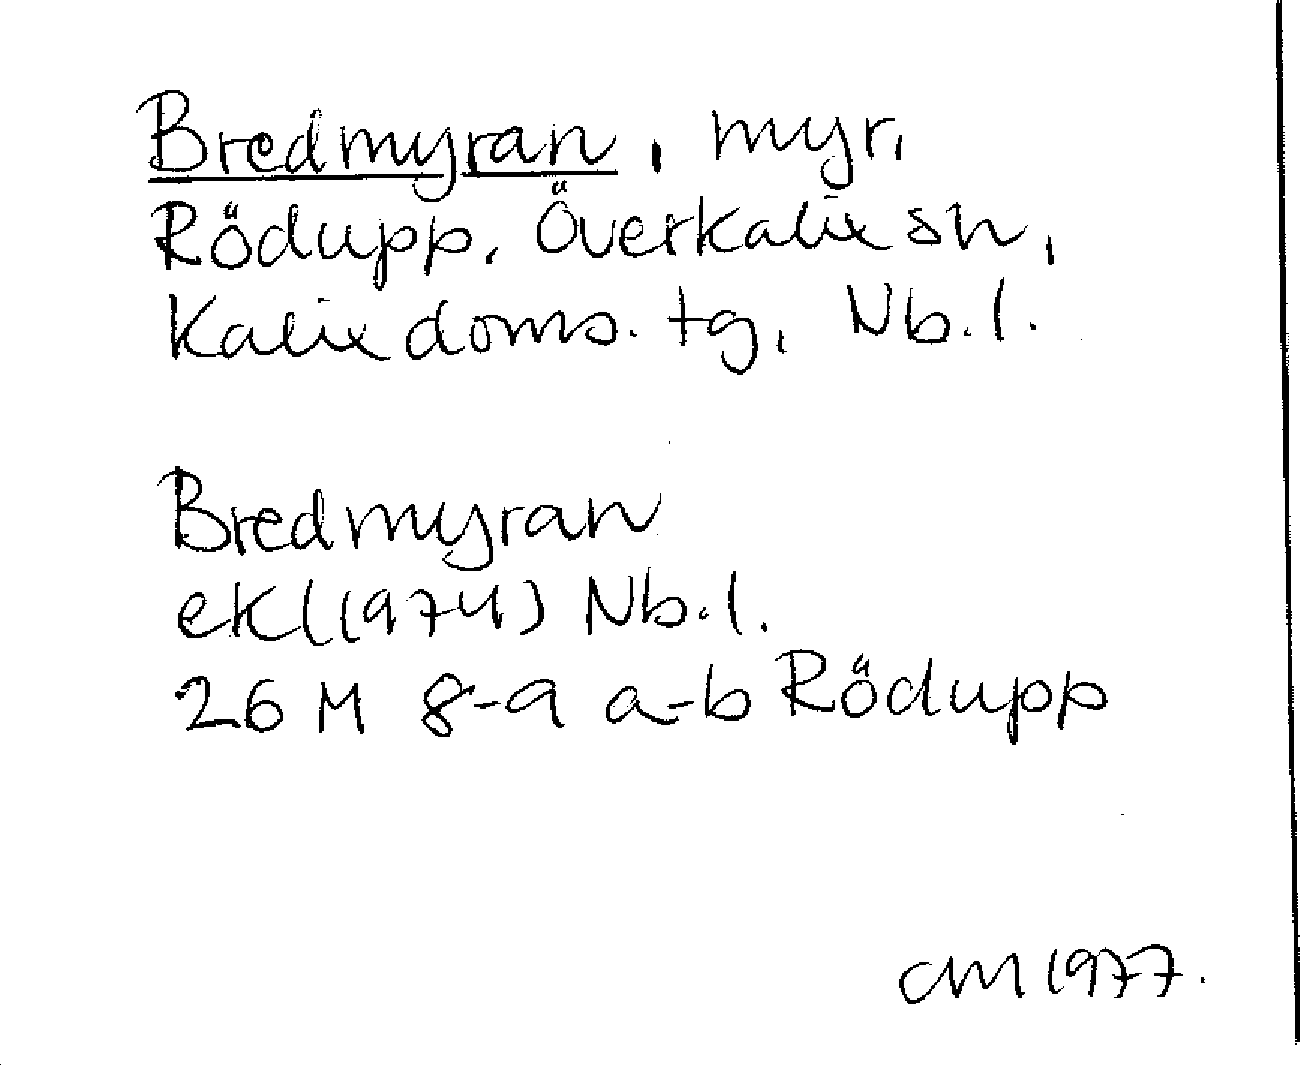 Bredmyran, myr,
Rödupp, Överkalix sn,
Kalix doms. tg, Nb. l.
Bredmyran
ek (1974) Nb. l.
26 M 8-9 a-b Rödupp
CM 1977.